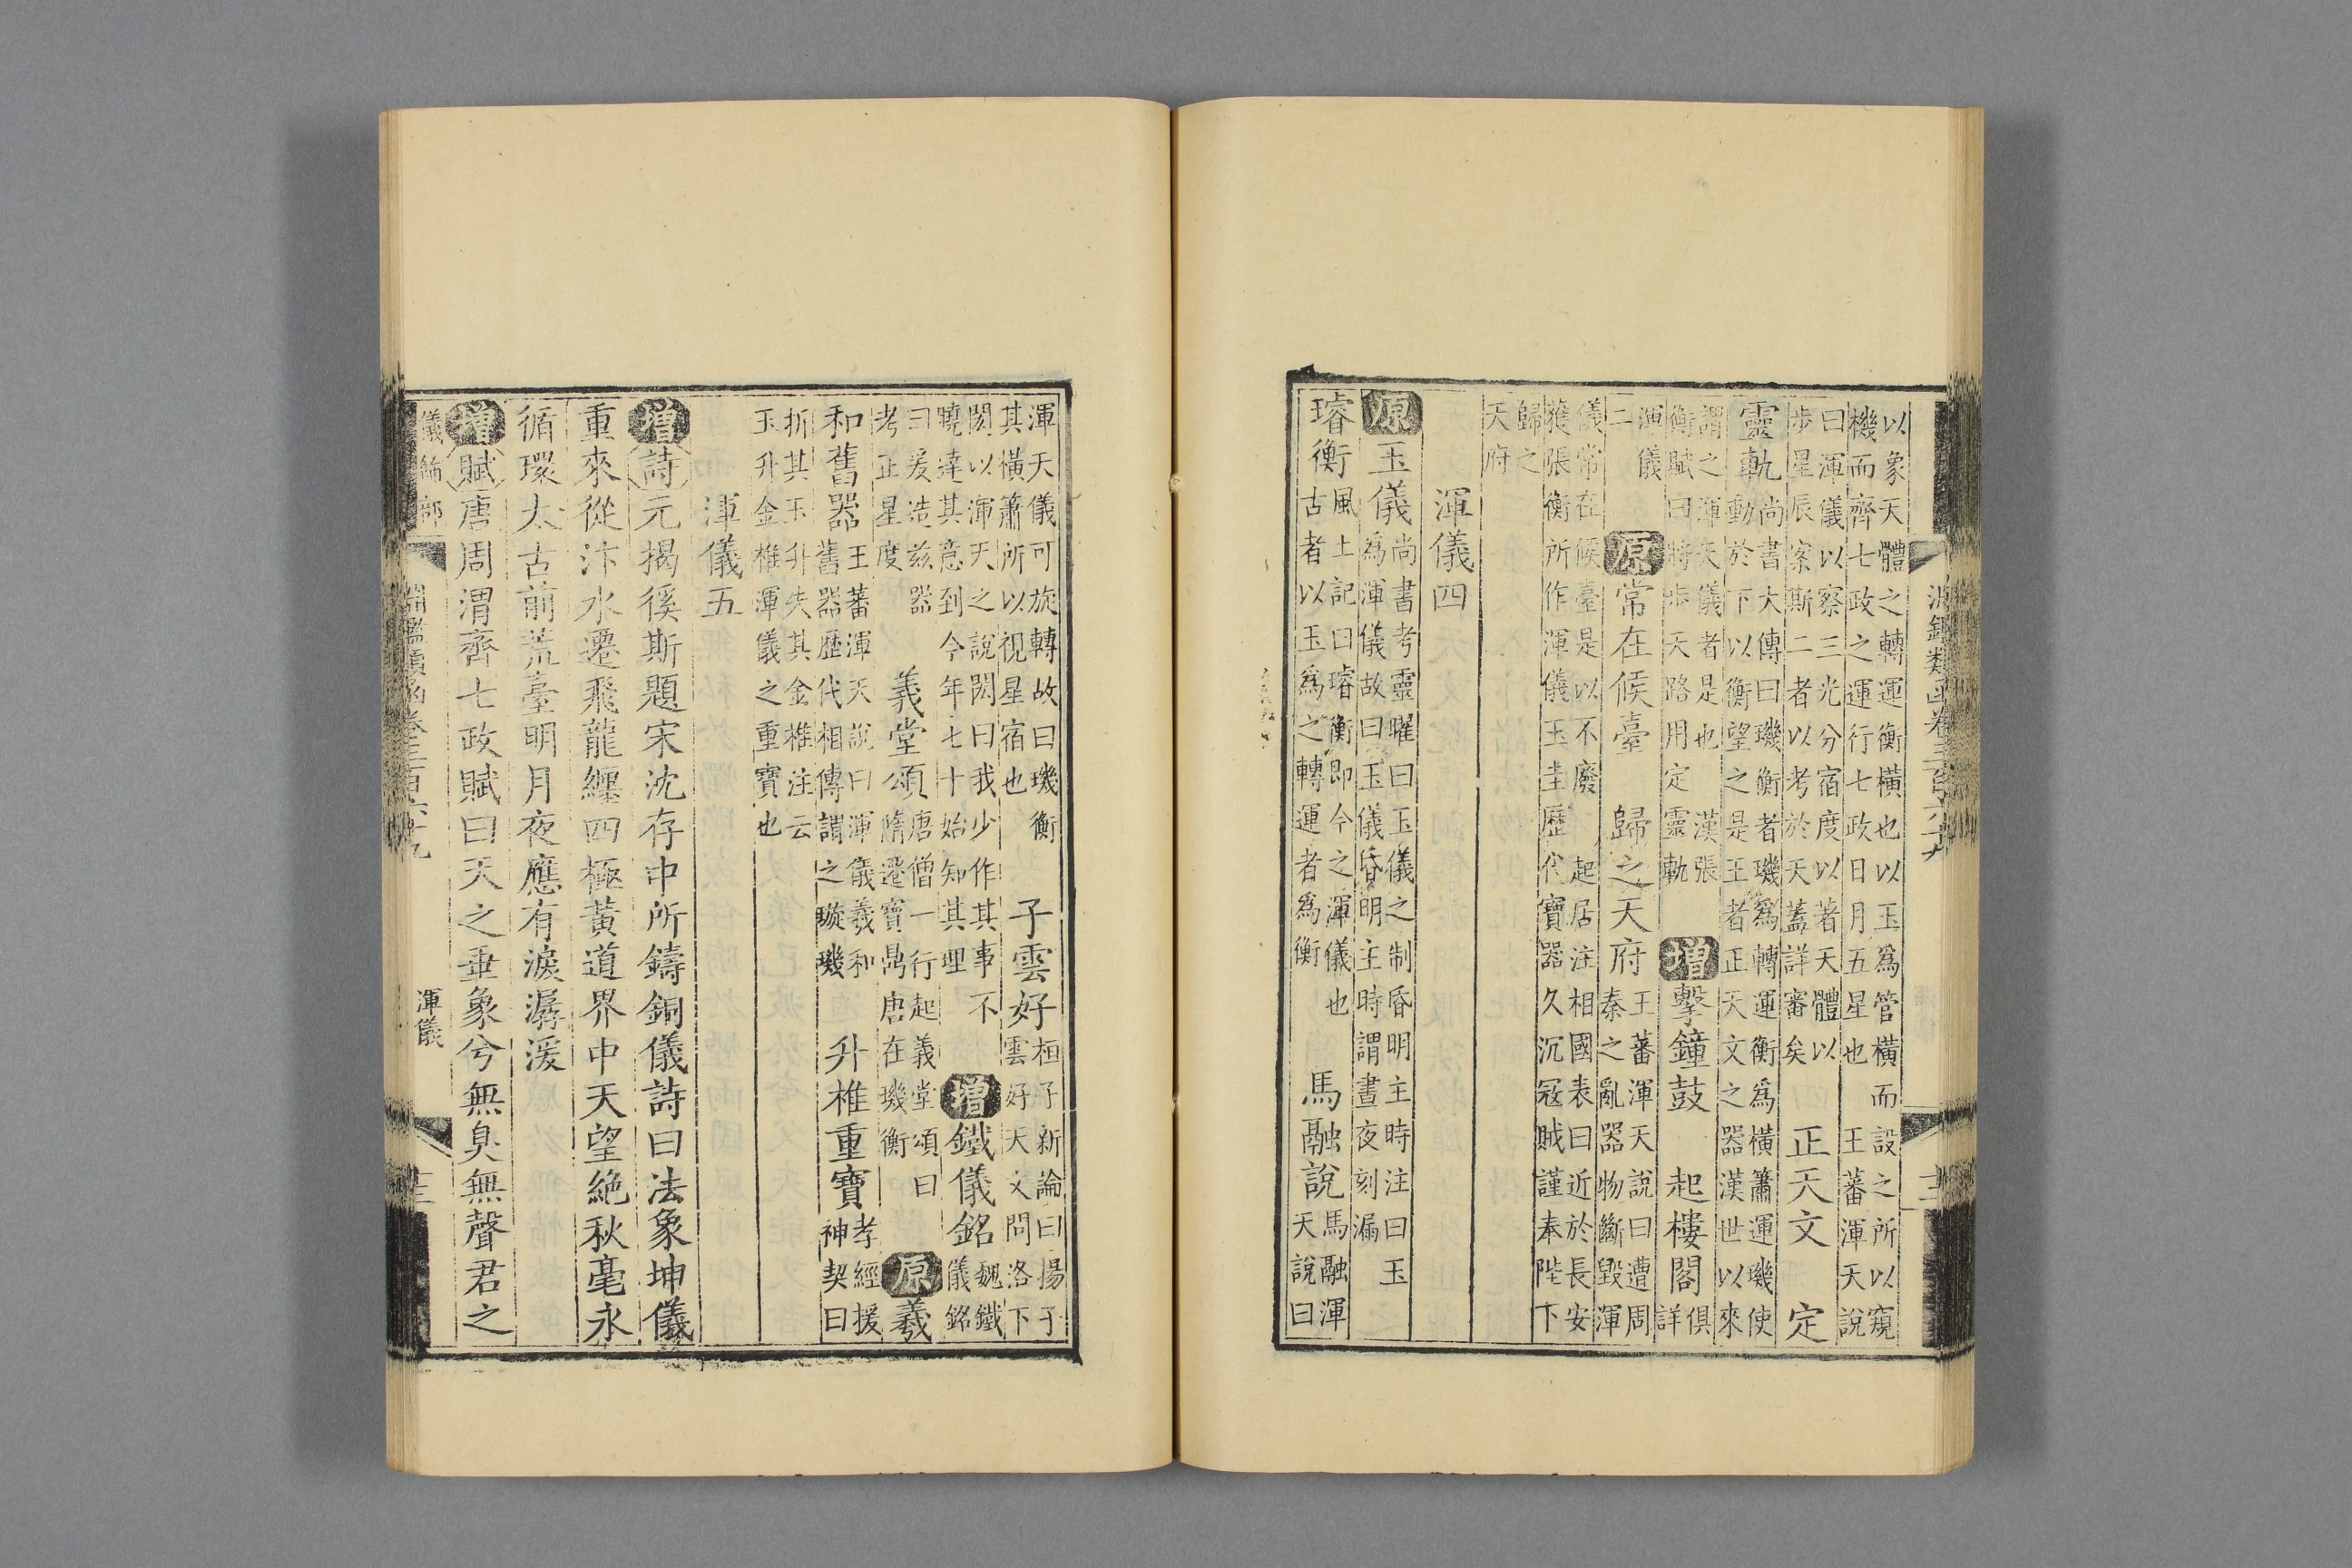 淵鑑類函卷三百六十九
以象天體之轉運衡橫也以玉爲管橫而設之所以窺
機而齊七政之運行七政日月五星也　王蕃渾天說
曰渾儀以察三光分宿度以著天體以
步星辰案斯二者以考於天蓋詳審矣
正天文　定
靈軌
尚書大傳曰璣衡者璣爲轉運衡爲橫簫運璣使
動於下以衡望之是王者正天文之器漢世以來
謂之渾天儀者是也　漢張
衡賦曰將步天路用定靈軌
增擊鐘鼓　起樓閣
俱
詳
渾儀
二
原常在候臺　歸之天府
王蕃渾天說曰遭周
秦之亂器物斷毀渾
儀常在候臺是以不廢　起居注相國表曰近於長安
獲張衡所作渾儀玉圭歷代寶器久沉冦賊謹奉陛下
歸之
天府
渾儀四
原玉儀
尚書考靈曜曰玉儀之制昏明主時注曰玉
爲渾儀故曰玉儀昏明主時謂晝夜刻漏
璿衡
風土記曰璿衡即今之渾儀也
古者以玉爲之轉運者爲衡
馬融說
馬融渾
天說曰
渾天儀可旋轉故曰璣衡
其橫簫所以視星宿也
子雲好
桓子新論曰揚子
雲好天文問洛下
閎以渾天之說閎曰我少作其事不
曉達其意到今年七十始知其理
增鐵儀銘
魏鐵
儀銘
曰爰造兹器
考正星度
義堂頌
唐僧一行起義堂頌曰
隋遷寶鼎唐在璣衡
原羲
和舊器
王蕃渾天說曰渾儀羲和
舊器歷代相傳謂之璇璣
升椎重寶
孝經援
神契曰
折其玉升失其金椎注云
玉升金椎渾儀之重寶也
渾儀五
增詩元揭徯斯題宋沈存中所鑄銅儀詩曰法象坤儀
重來從汴水遷飛龍纏四極黃道界中天望絕秋毫永
循環太古前荒臺明月夜應有淚潺湲
增賦唐周渭齊七政賦曰天之垂象兮無臭無聲君之
儀飾部
淵鑑類函卷三百六十九
渾儀